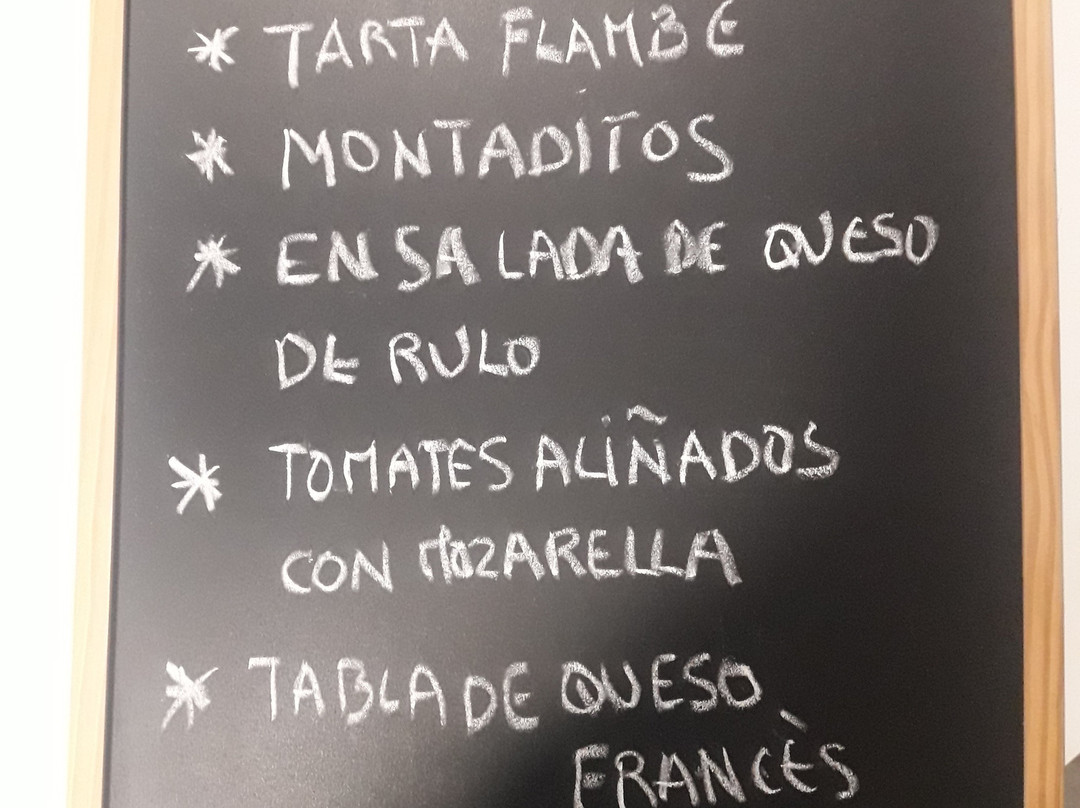 * TARTA FLAMBE
* MONTADITOS
* ENSALADA DE QUESO
DE RULO
* TOMATES ALIÑADOS
CON MOZARELLA
* TABLA DE QUESO
FRANCÈS